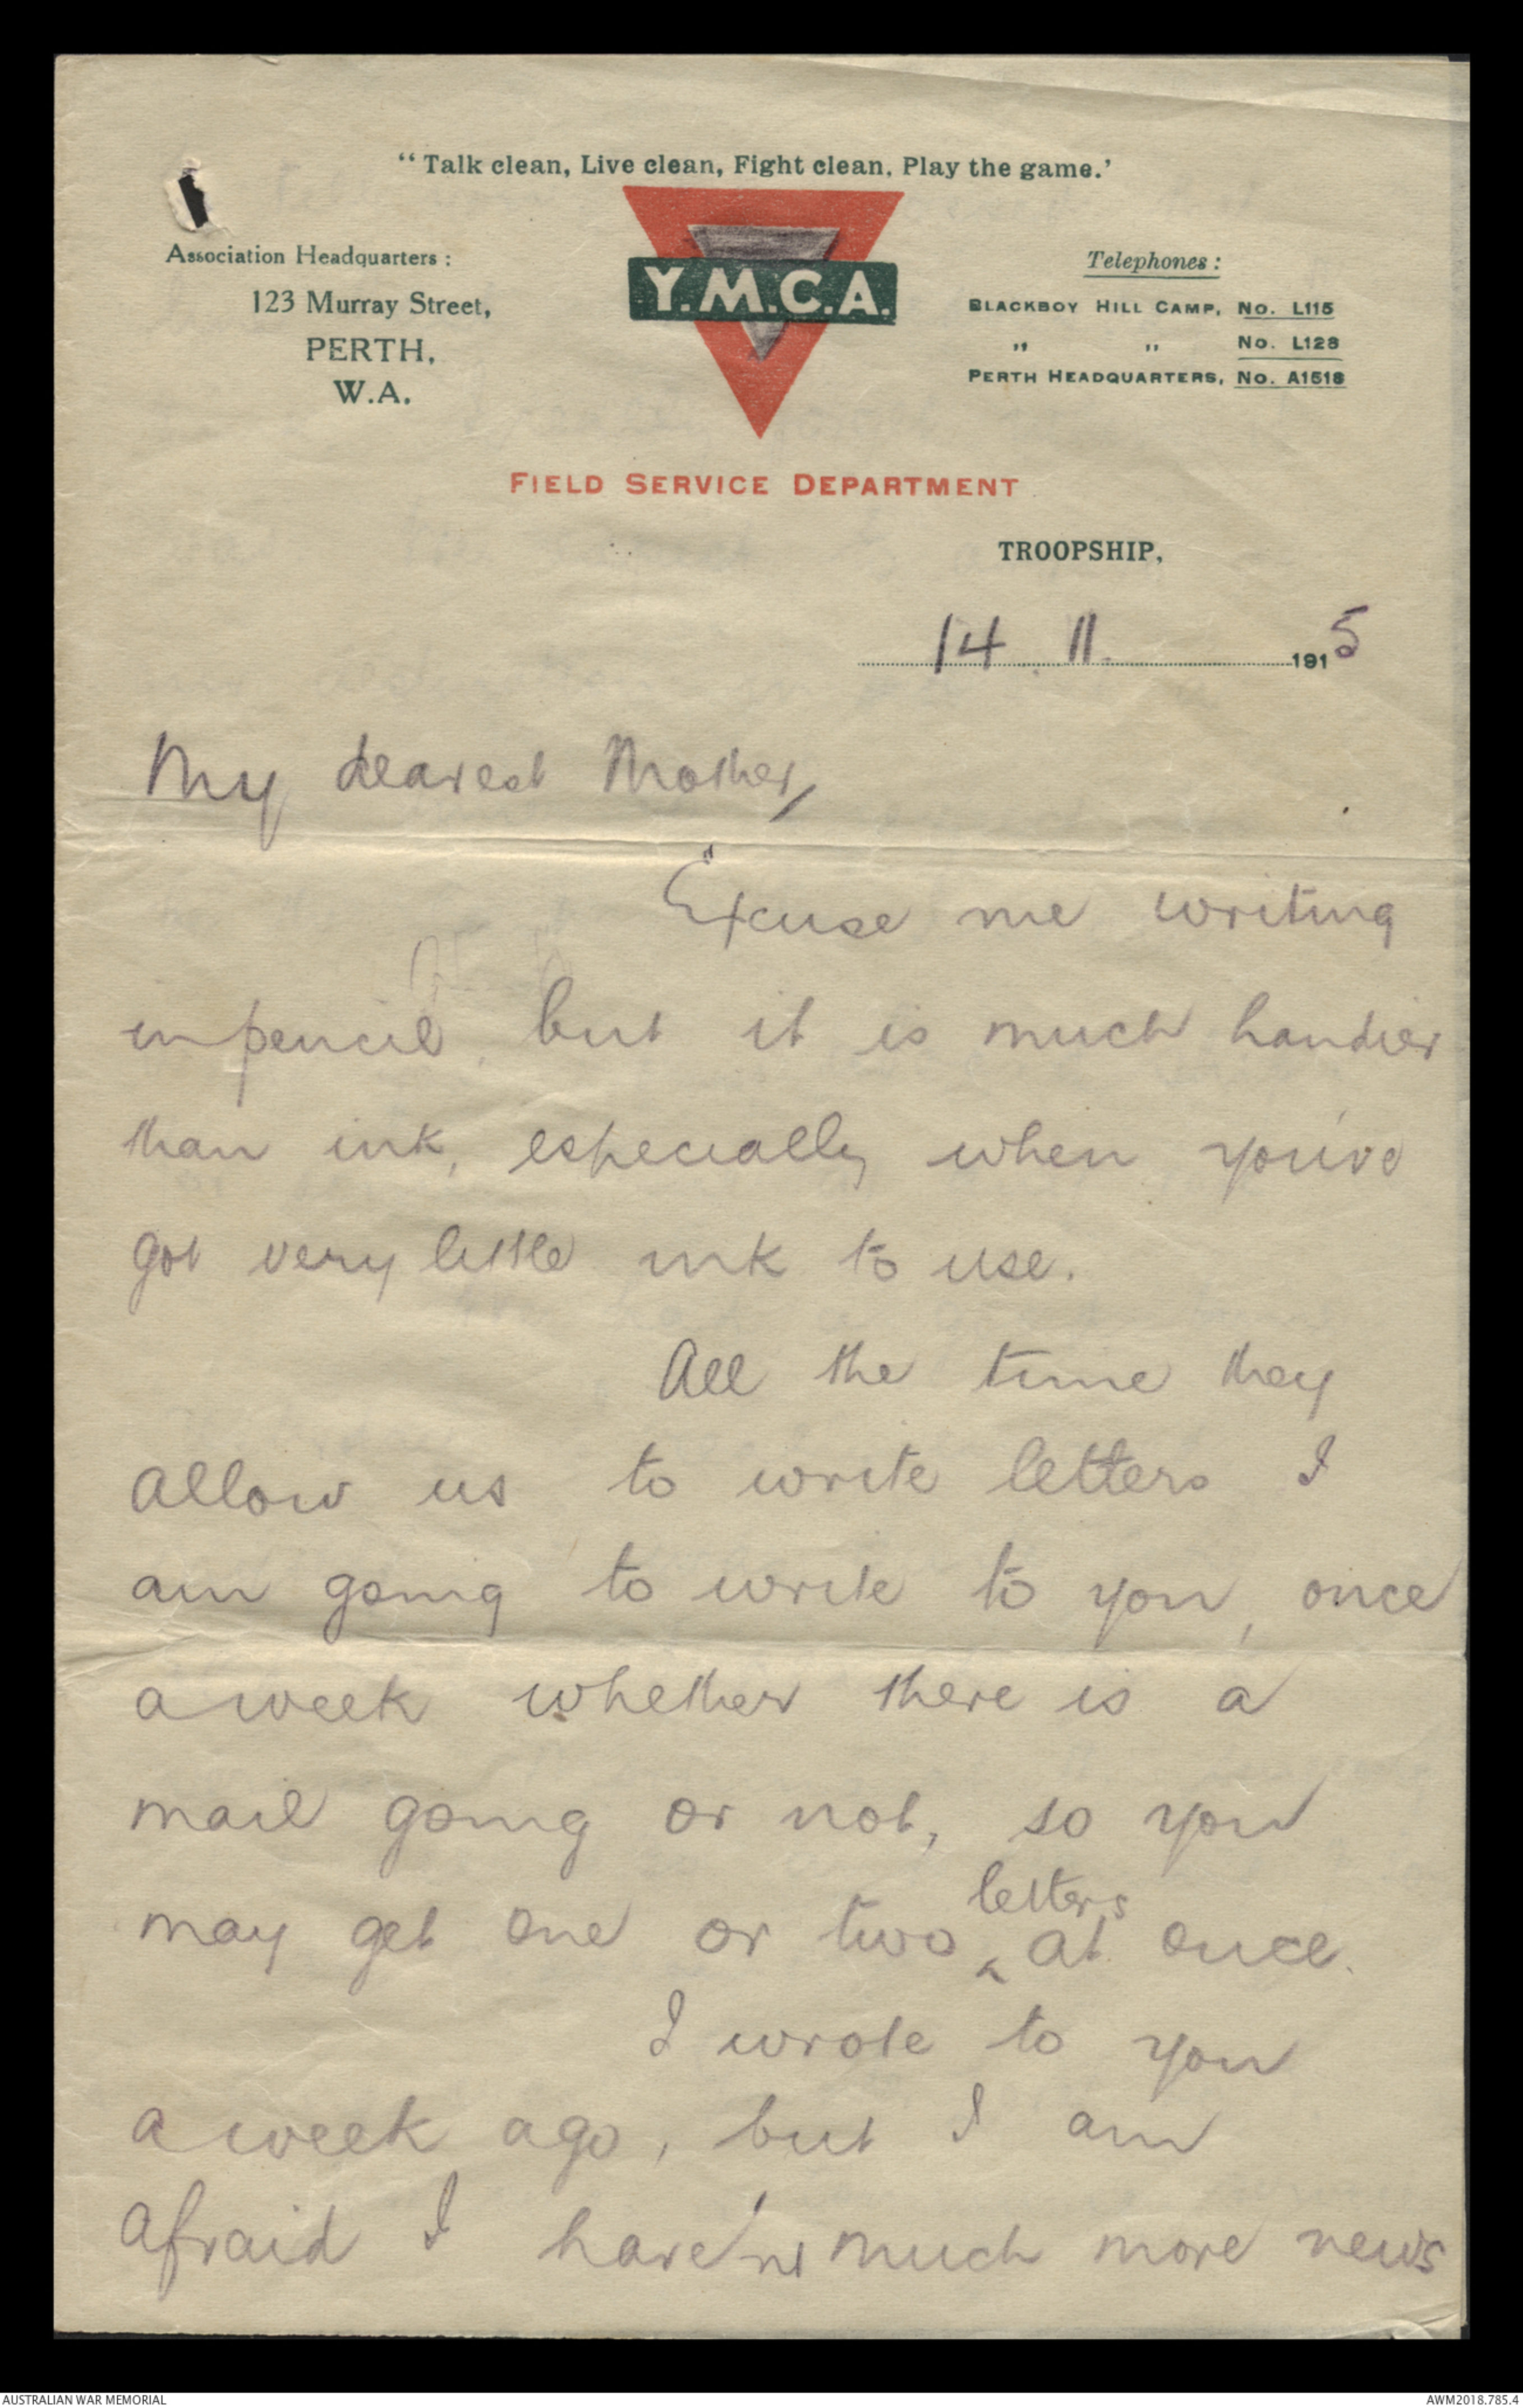 “Talk clean, Live clean, Fight clean, Play the game.’
Association Headquarters :
123 Murray Street,
PERTH,
W.A.
Y.M.C.A.
Telephones :
BLACKBOY HILL CAMP, No. L115
" " No. L128
PERTH HEADQUARTERS, No. A1518
FIELD SERVICE DEPARTMENT
TROOPSHIP,
14. 11. 1915
My dearest Mother,
Excuse me writing
in pencil, but it is much handier
than ink, especially when you've
got very little ink to use.
All the time they
allow us to write letters I
am going to write to you, once
a week whether there is a
mail going or not, so you
may get one or two ^ letters at once.
I wrote to you
a week ago, but I am
afraid I have'nt much more news
AUSTRALIAN WAR MEMORIAL
AWM2018.785.4